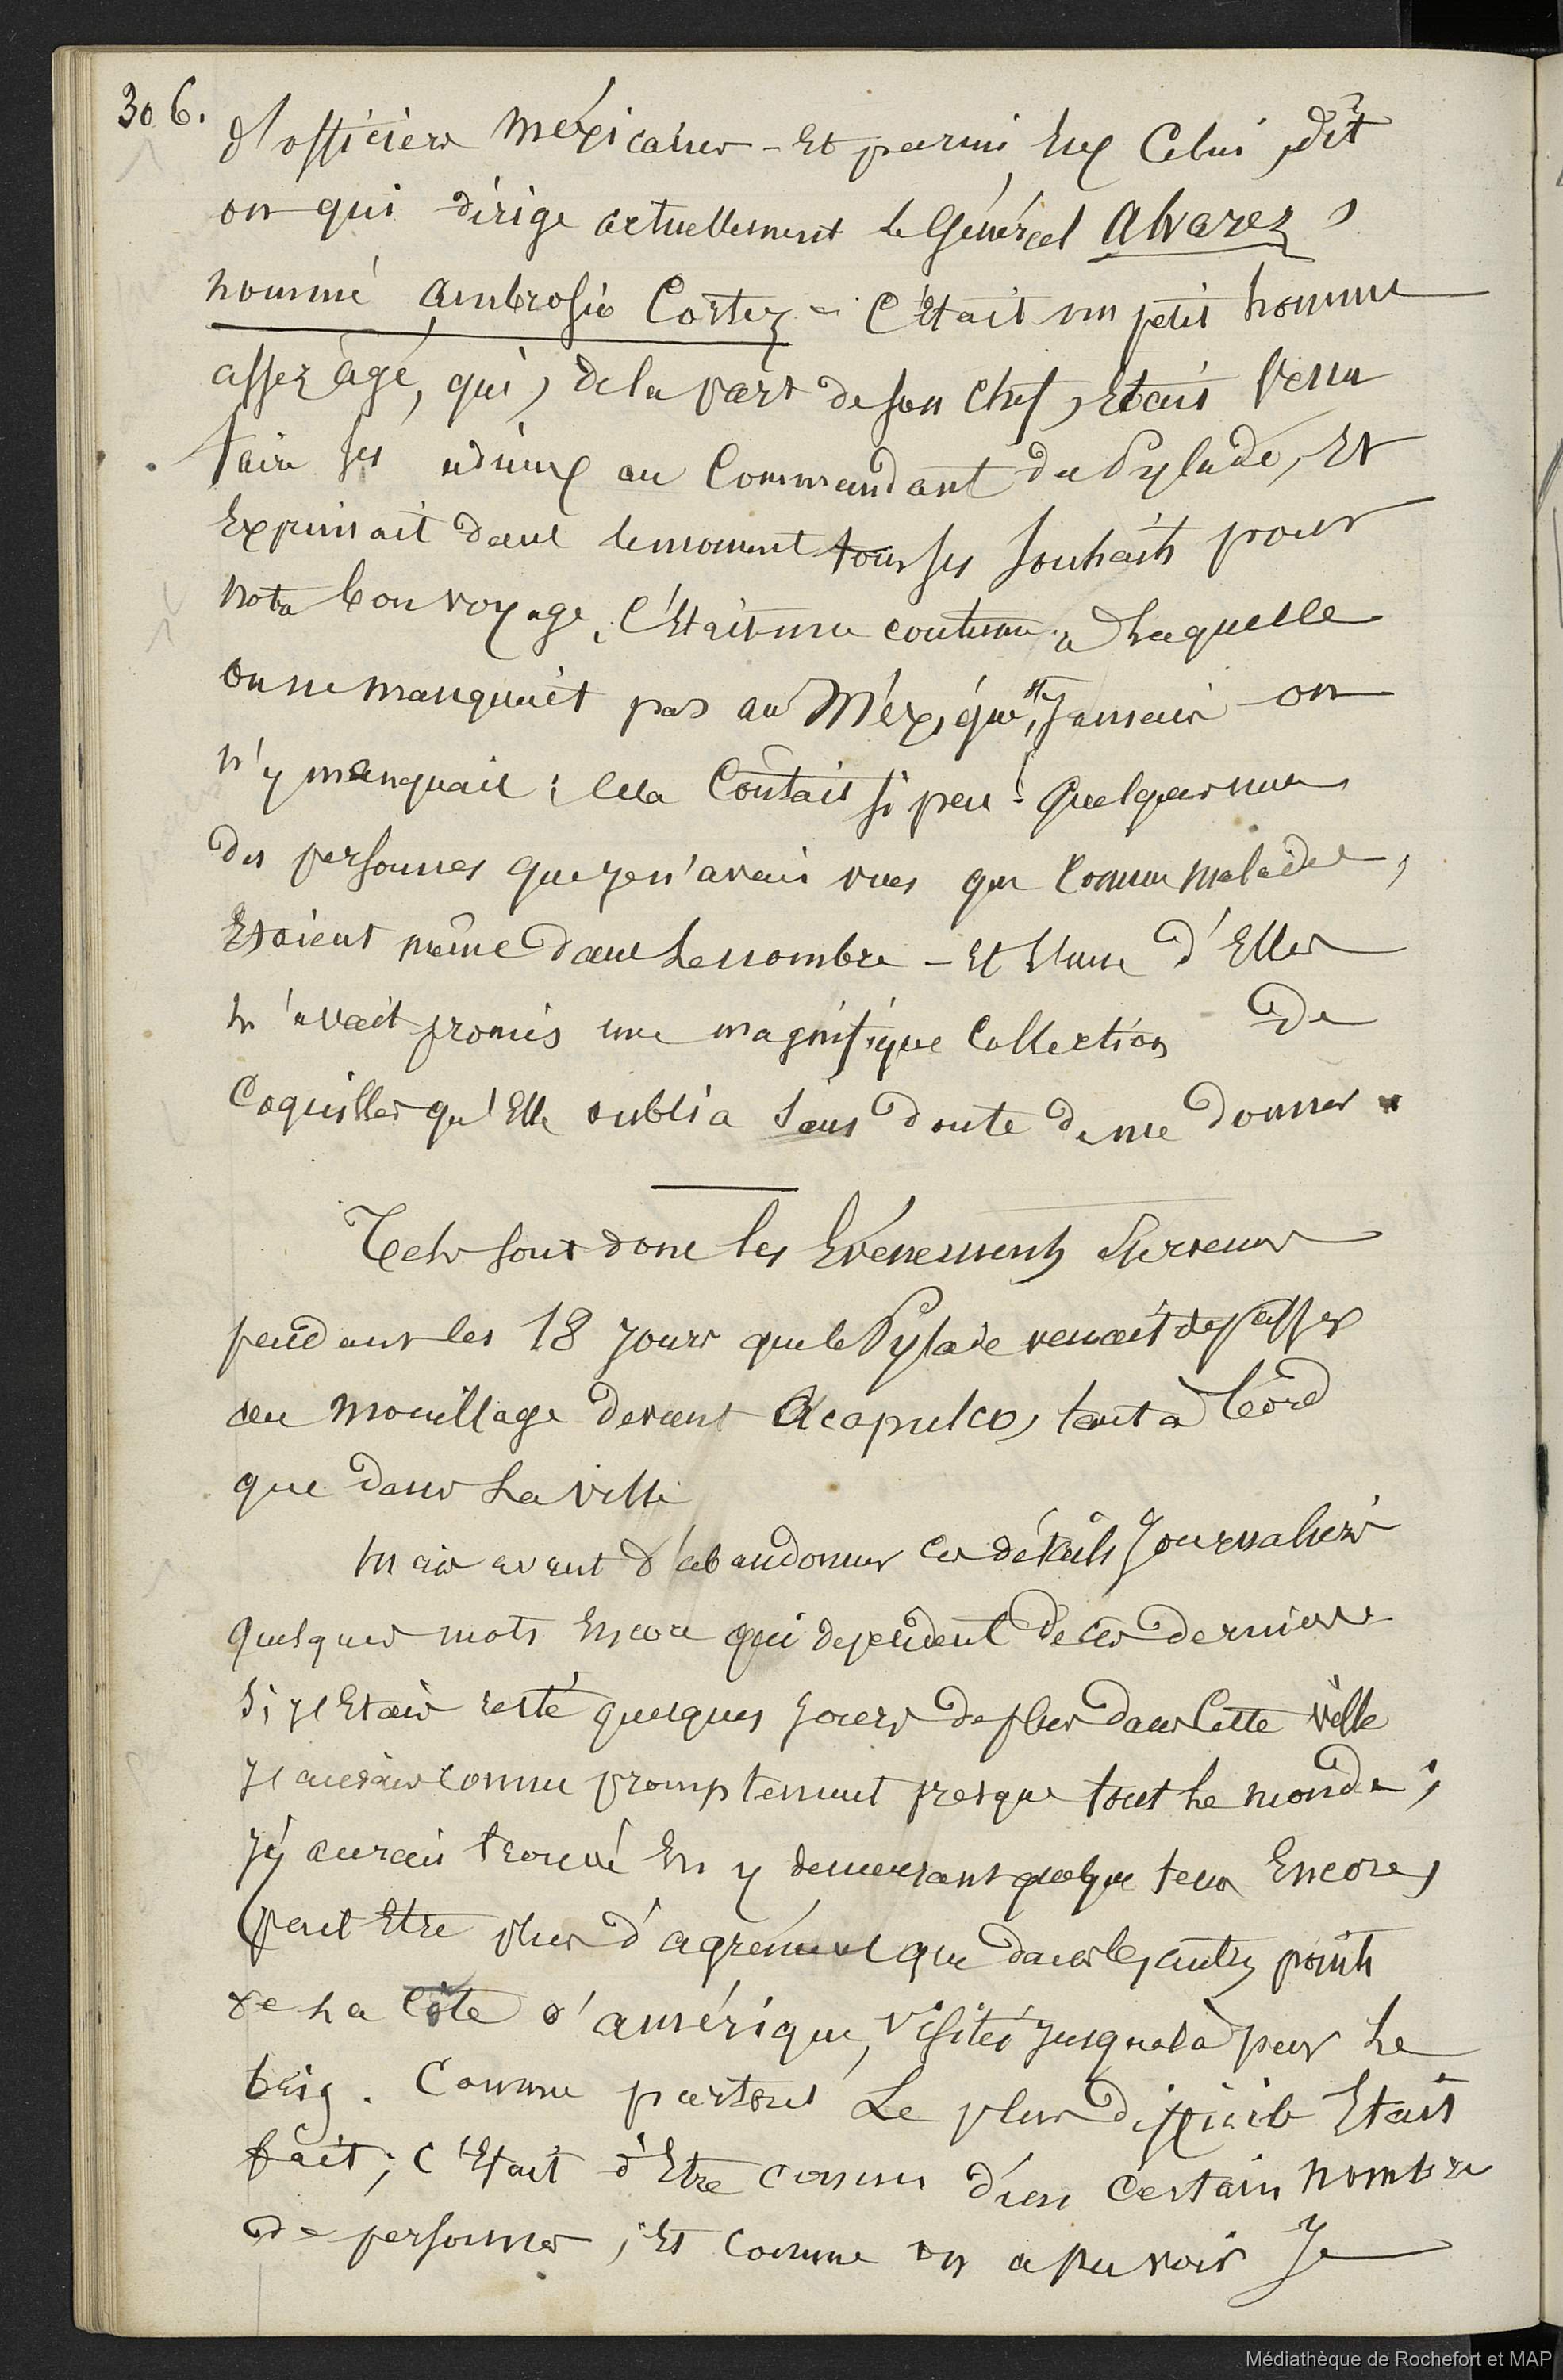 306.
d'officiers Méxicains - Et parmi Eux Celui, dit
on qui dirige actuellement Le Général Alvarez,
nommé Ambrosio Cortez - C'Etait un petit homme
assez âgé, qui, de la part de son Chef, Etait Venu
faire ses adieux au Commandant du Pylade, Et
Exprimait dans le moment tous ses souhaits pour
notre bon voyage. C'Etait une coutume à Laquelle
on ne manquait pas au Méxique, Jamais on
n'y manquait ; Cela Coûtait si peu ! Quelques unes
des personnes que je n'avais vues que Comme Malades,
Etaient même dans Le nombre - Et L'une d'Elles
m'avait promis une magnifique Collection De
Coquilles qu'Elle oublia sans doute de me donner.
Tels sont donc les Evénements Survenus
pendant les 18 Jours que le Pylade venait de passer
au Mouillage devant Acapulco, tant à bord
que dans La ville
Mais avant d'abandonner ces détails Journaliers
quelques mots Encore qui dependent de ces derniers
Si j'Etais resté quelques Jours de plus dans Cette ville
j'aurais connu promptement presque tout Le monde ;
J'y aurais trouvé En y demeurant quelque tems Encore,
peut Etre plus d'agrément que dans les autres points
de La Côte d'amérique, visités Jusque là par Le
brig. Comme partout Le plus difficile Etait
fait ; C'Etait d'Etre connu d'un Certain nombre
de personnes ; Et Comme on a pu voir Je
Médiathèque de Rochefort et MAP